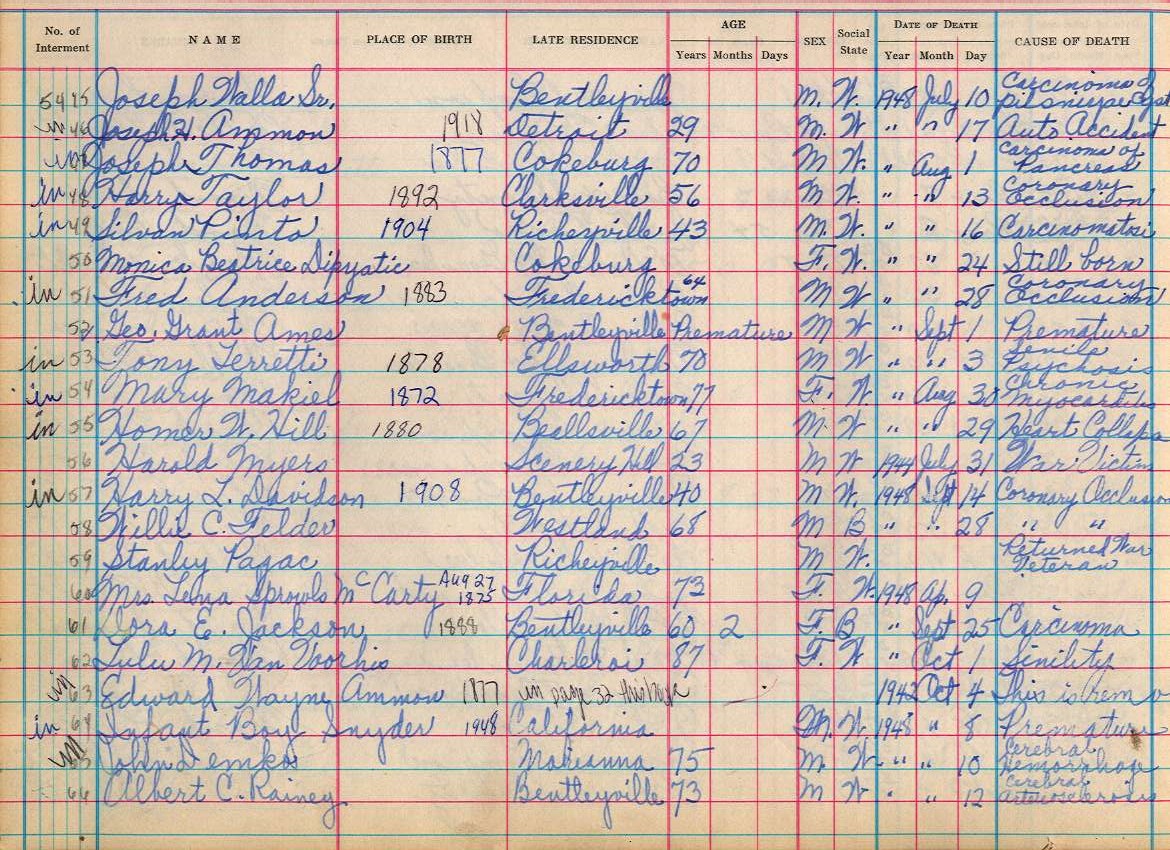 No. of Interment NAME PLACE OF BIRTH LATE RESIDENCE AGE Years Months Days SEX Social State DATE OF DEATH Year Month Day CAUSE OF DEATH
5445 Joseph Walla Sr. Bentleyville M. W. 1948 July 10 Carcinoma of
in 46 Joseph H. Ammon 1918 Detroit 29 M. W " " 17 Auto Accident
in Joseph Thomas 1877 Cokeburg 70 M W. " Aug 1 Carcinoma of Pancreas
in 48 Harry Taylor 1892 Clarksville 56 M W. " " 13 Coronary Occlusion
in 49 Silvan Pinto 1904 Richeyville 43 M. W. " " 16 Carcinomatosi
50 Monica Beatrice Dipyatic Cokeburg F. W. " " 24 Still born
in 51 Fred Anderson 1883 Fredericktown 64 M W. " " 28 Coronary Occlusion
52 Geo. Grant Ames Bentleyville Premature M W " Sept 1 Premature
in 53 Tony Ferretti 1878 Ellsworth 70 M W " " 3 Senile Psychosis
in 54 Mary Makiel 1872 Fredericktown 77 F. W " Aug 30 Chronic Myocarditis
in 55 Homer W. Hill 1880 Beallsville 67 M W " " 29 Heart Collapse
56 Harold Myers Scenery Hill 23 M W 1944 July 31 War Victim
in 57 Harry L. Davidson 1908 Bentleyville 40 M W. 1948 Sept 14 Coronary Occlusion
58 Willie C. Felder Westland 68 M B " " 28 " "
59 Stanley Pagac Richeyville M W. Returned War Veteran
60 Mrs. Lena Sprowls McCarty Aug 27 1875 Florida 73 F. W. 1948 Ap. 9
61 Dora E. Jackson 1888 Bentleyville 60 2 F. B " Sept 25 Carcinoma
62 Lulu M. Van Voorhis Charleroi 87 F. W " Oct 1 Sinility
in 63 Edward Wayne Ammon 1877 in page 32 this 1942 Oct 4 This is rem
in 64 Infant Boy Snyder 1948 California M. W. 1948 " 8 Premature
John Demko Marianna 75 M W. " " 10 Cerebral Hemorrhage
66 Albert C. Rainey Bentleyville 73 M W " " 12 Cerebral Arteriosclerosis